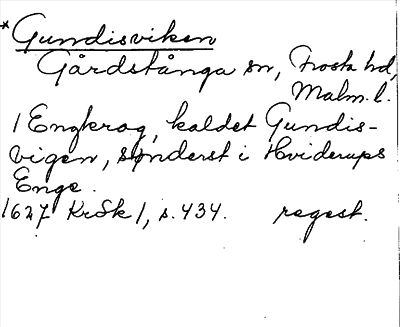 *Gundisviken
Gårdstånga sn, Frosta hd,
Malm. l.
1 Engkrog, kaldet Gundis-
vigen, sønderst i Hviderups
Enge.
1627 KrSk 1, s. 434. regest.